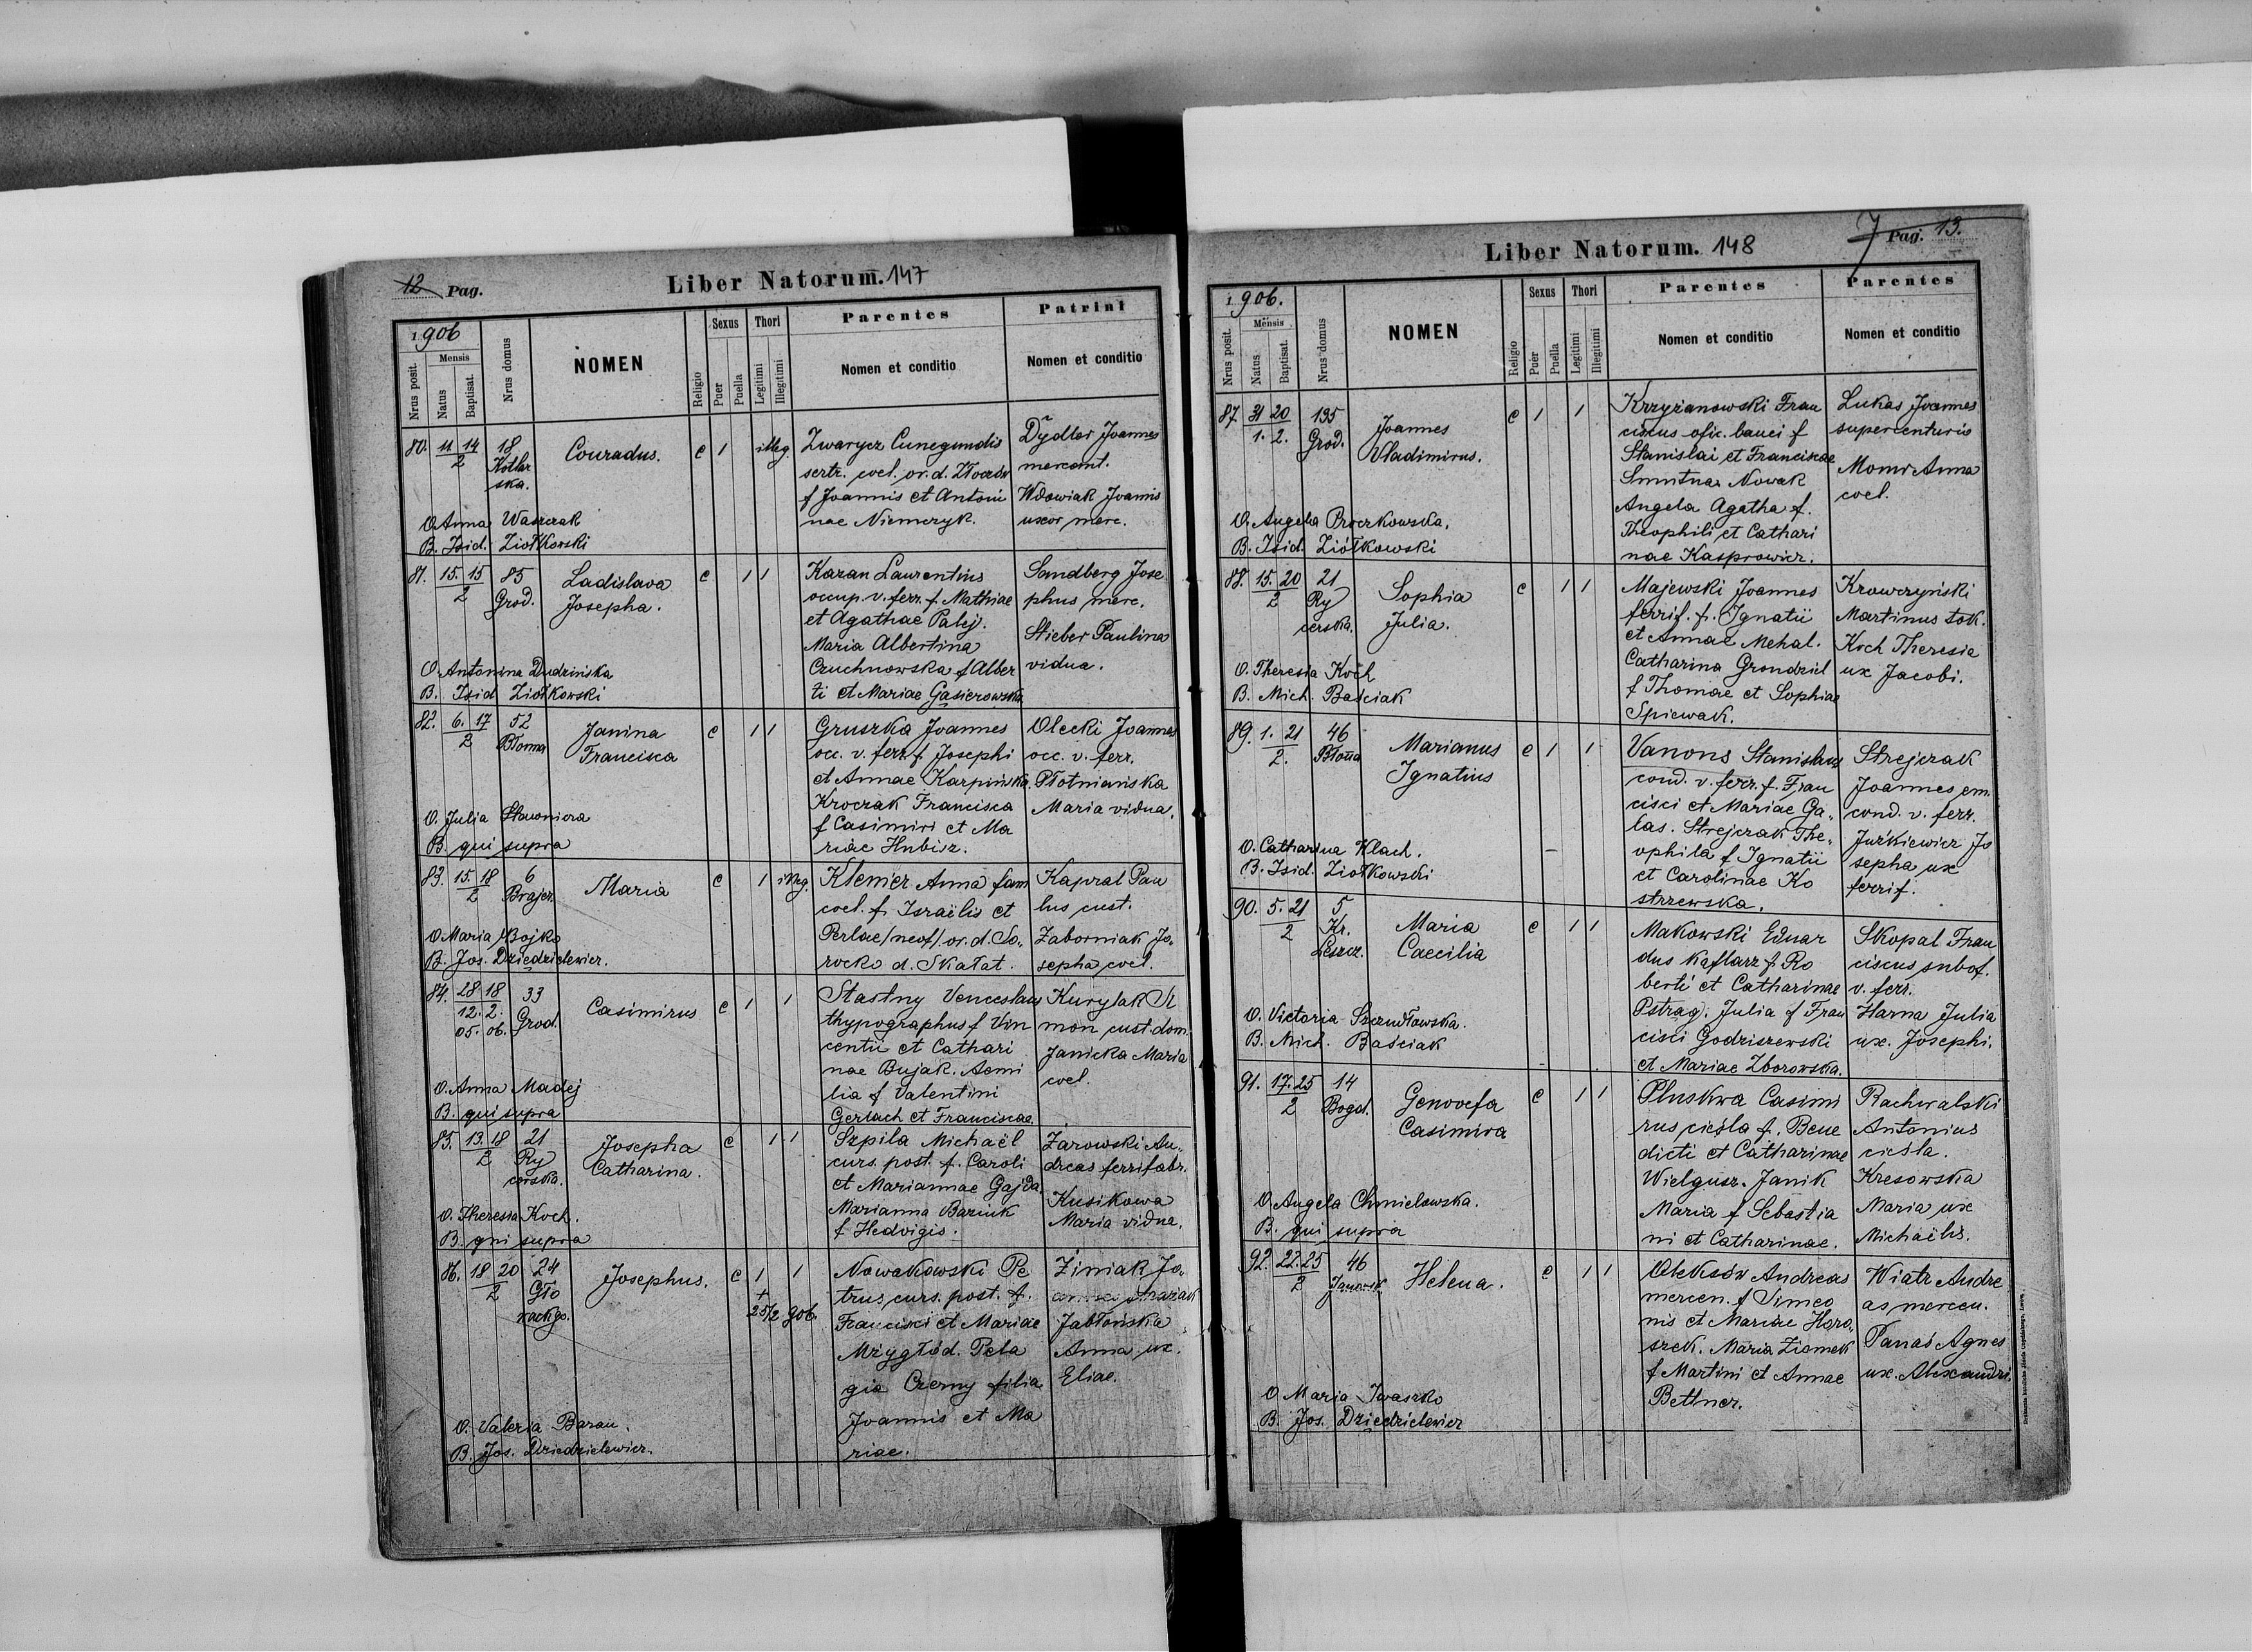 12 Pag.
Liber Natorum. 147
1906
Nrus posit.
Mensis
Natus
Baptisat.
Nrus domus
NOMEN
Religio
Sexus
Puer
Puella
Thori
Legitimi
Illegitimi
Parentes
Nomen et conditio
Patrini
Nomen et conditio
80. 11 14
2
18
Kotlar
ska.
Conradus.
c 1 illeg.
Zwarycz Cunegundis
sertr. coel. or. d. Złoczów
f Joannis et Antoni
nae Niemczyk.
Dydler Joannes
mercant.
Wdowiak Joannis
uxor merc.
O. Anna Waszczak
B. Isid. Ziołkowski
81. 15. 15
2
85
Grod.
Ladislava
Josepha.
c 1 1
Kazan Laurentius
occup. v. ferr. f. Mathiae
et Agathae Palij.
Maria Albertina
Czuchnowska f Alber
ti et Mariae Gąsierowska
Sandberg Jose
phus merc.
Stieber Paulina
vidua.
O. Antonina Dudzińska
B. Isid Ziołkowski
82. 6. 17
2
52
Błonna
Janina
Francisca
c 1 1
Gruszka Joannes
occ. v. ferr. f. Josephi
et Annae Karpińska.
Kroczak Francisca
f Casimiri et Ma
riae Hubisz.
Olecki Joannes
occ. v. ferr.
Płotniańska
Maria vidua.
O. Julia Stawniera
B. qui supra
83. 15. 18
2
6
Brajer.
Maria
c 1 illeg.
Klemer Anna fam
coel. f. Israëlis et
Perlae /neof/. or. d. So„
rocko d. Skałat.
Kapral Pau
lus cust.
Zaborniak Jo„
sepha coel.
O. Maria Bojko
B. Jos. Dziedzielewicz.
84. 28 18
12. 2.
05. 06.
33
Grod.
Casimirus
c 1 1
Stastny Venceslaus
thypographus f Vin
centii et Cathari
nae Bujak. Aemi
lia f Valentini
Gerlach et Franciscae
Kurylak Si
mon cust. dom.
Janicka Maria
coel.
O. Anna Madej
B. qui supra
85. 13. 18
2
21
Ry
cerska.
Josepha
Catharina.
c 1 1
Szpila Michaël
curs. post. f. Caroli
et Mariannae Gajda.
Marianna Baziuk
f Hedvigis.
Żarowski An„
dreas ferrifabr.
Kusikowa
Maria vidua.
O. Theresia Koch.
B. qui supra
86. 18 20
2
24
Gło
wackgo.
Josephus.
c 1 1
+
25/2 906.
Nowakowski Pe
trus curs. post. f.
Francisci et Mariae
Mrzygłód. Pela
gia Czerny filia
Joannis et Ma
riae.
Ziniak Jo„
Jabłońska
Anna ux.
Eliae.
O. Valeria Baran.
B. Jos. Dziedzielewicz.
7 Pag. 13.
Liber Natorum. 148
1906.
Nrus posit.
Mensis
Natus
Baptisat.
Nrus domus
NOMEN
Religio
Sexus
Puer
Puella
Thori
Legitimi
Illegitimi
Parentes
Nomen et conditio
Parentes
Nomen et conditio
87. 31 20
1. 2.
135
Grod.
Joannes
Wladimirus.
c 1 1
Krzyżanowski Fran
ciscus ofic. banci f
Stanislai et Franciscae
Smutna. Nowak
Angela Agatha f.
Theophili et Cathari
nae Kasprowicz.
Lukas Joannes
supercenturio
Momr Anna
coel.
O. Angela Proczkowska.
B. Isid. Ziółkowski
88. 15. 20
2
21
Ry
cerska.
Sophia
Julia.
c 1 1
Majewski Joannes
ferrif. f. Ignatii
et Annae Mehal.
Catharina Grondziel
f Thomae et Sophiae
Spiewak.
Krowczyński
Martinus tok.
Koch Theresia
ux Jacobi.
O. Theresia Koch
B. Mich. Baściak
89. 1. 21
2.
46
Błonna
Marianus
Ignatius
c 1 1
Vanons Stanislaus
cond. v. ferr. f. Fran
cisci et Mariae Ga„
las. Strejczak The„
ophila f Ignatii
et Carolinae Ko
strzewska.
Strejczak
Joannes em.
cond. v. ferr.
Jurkiewicz Jo
sepha ux
ferrif.
O. Catharina Klach.
B. Isid. Ziołkowski
90. 5. 21
2
5
Kr.
Leszcz.
Maria
Caecilia
c 1 1
Makowski Eduar
dus kaflarz f. Ro
berti et Catharinae
Pstrag. Julia f Fran
cisci Godziszewski
et Mariae Zborowska.
Skopal Fran
ciscus subof.
v. ferr.
Harna Julia
ux. Josephi.
O. Victoria Szczudłowska.
B. Mich. Baściak
91. 17. 25
2
14
Bogd.
Genovefa
Casimira
c 1 1
Pluskwa Casimi
rus cieśla f. Bene
dicti et Catharinae
Wielgusz. Janik
Maria f Sebastia
ni et Catharinae.
Rachwalski
Antonius
cieśla.
Kresowska
Maria ux
Michaëlis.
O. Angela Chmielowska.
B. qui supra
92. 22. 25
2
46
Janowsk.
Helena.
c 1 1
Oleksów Andreas
mercen. f Simeo
nis et Mariae Horo„
szek. Maria Ziomek
f Martini et Annae
Bettner.
Wiatr Andre
as mercen.
Panaś Agnes
ux. Alexandri.
O Maria Iwaszko
B. Jos. Dziedzielewicz